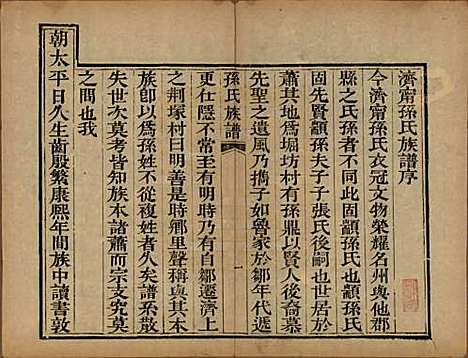 濟甯孫氏族譜序
今濟甯孫氏衣冠文物榮耀名州與他郡
縣之氏孫者不同然此固顓孫氏也顓孫氏
固先賢顓孫夫子子張氏後嗣也世居於
蕭其地爲堀坊村有孫鼎以贤人後裔慕
先聖之遺風乃攜子如魯家於鄒年代遞
更仕隱不常至有自鄒遷濟上
孫氏族譜
一
之荆塚村曰明善是時鄉里聲稱與其
族卽以爲孫姓不從複姓者久矣譜系散
失世次莫考皆知族本諸蕭而宗支究莫
之間也我
朝太平日久生齒殷繁康熙年間族中讀書敦